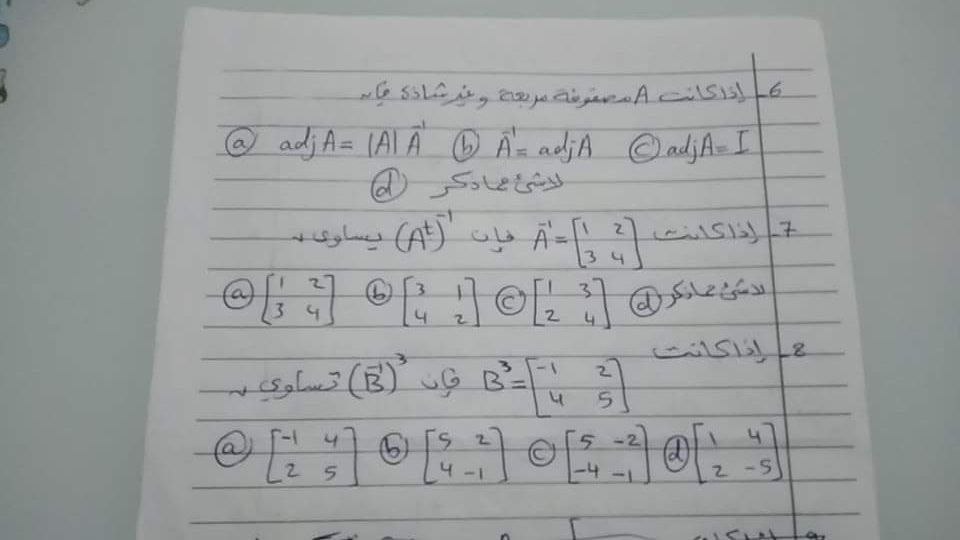 6- إذا كانت A مصفوفة مربعة وغير شاذة فإن
ⓐ adj A = |A| A⁻¹ ⓑ A⁻¹ = adj A ⓒ adj A = I
ⓓ لاشئ مماذكر
7- إذا كانت A⁻¹ = [1 2; 3 4] فإن (Aᵗ)⁻¹ يساوي
ⓐ [1 2; 3 4] ⓑ [3 1; 4 2] ⓒ [1 3; 2 4] ⓓ لاشئ مماذكر
8- إذا كانت
B³ = [-1 2; 4 5] فإن (B⁻¹)³ تساوي
ⓐ [-1 4; 2 5] ⓑ [5 2; 4 -1] ⓒ [5 -2; -4 -1] ⓓ [1 4; 2 -5]